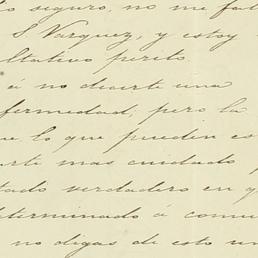 seguro, no me fal
S. Vazquez, y estoy
ltativo perito.
á no decirte una
fermedad; pero la
e lo que pueden es
rte mas cuidado
tado verdadero en q
determinado á comu
no digas de esto un